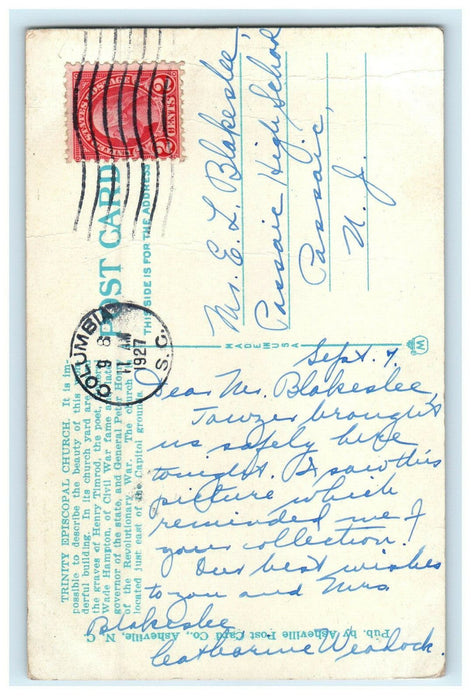 2 CENTS 2
POST CARD
THIS SIDE IS FOR THE ADDRESS
COLUMBIA
9 8
11 AM
1927
S.C.
Mr. E. L. Blakeslee,
Passaic High School
Passaic,
N. J.
MADE IN USA
M
Sept. 7,
Dear Mr. Blakeslee,
Towzer brought
us safely here
tonight. I saw this
picture which
reminded me of
your collection.
Our best wishes
to you and Mrs.
Blakeslee
Catharine Weadock.
TRINITY EPISCOPAL CHURCH. It is im-
possible to describe the beauty of this
derful building. In its church yard are
the graves of Henry Timrod, the poet,
Wade Hampton, of Civil War fame and
governor of the state, and General Peter
of the Revolutionary War. The church
located just east of the Capitol grounds.
Pub. by Asheville Post Card Co., Asheville, N. C.